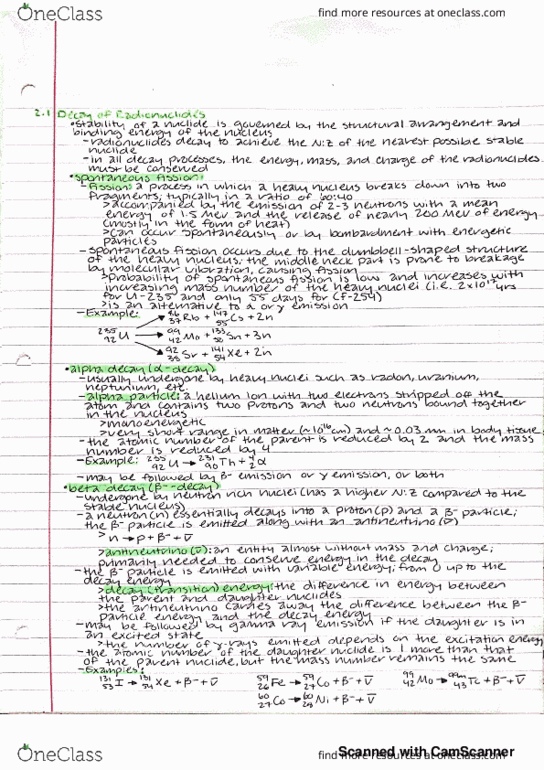 OneClass
find more resources at oneclass.com
2.1 Decay of Radionuclides
•stability of a nuclide is governed by the structural arrangement and
binding energy of the nucleus
-radionuclides decay to achieve the N:Z of the nearest possible stable
nuclide
-in all decay processes, the energy, mass, and charge of the radionuclides
must be conserved
•spontaneous fission:
-fission: a process in which a heavy nucleus breaks down into two
fragments, typically in a ratio of 60:40
>accompanied by the emission of 2-3 neutrons with a mean
energy of 1.5 MeV and the release of nearly 200 MeV of energy
(mostly in the form of heat)
>can occur spontaneously or by bombardment with energetic
particles
-spontaneous fission occurs due to the dumbbell-shaped structure
of the heavy nucleus; the middle neck part is prone to breakage
by molecular vibration, causing fission
>probability of spontaneous fission is low and increases with
increasing mass number of the heavy nuclei (i.e. 2x10¹⁷ yrs
for U-235 and only 55 days for Cf-254)
>is an alternative to α or γ emission
-Example:
Rb + Cs + 2n
²³⁵₉₂U → ⁹⁹₄₂Mo + Sn + 3n
Sr + ¹⁴¹₅₄Xe + 2n
•alpha decay (α-decay)
-usually undergone by heavy nuclei such as radon, uranium,
neptunium, etc.
-alpha particle: a helium ion with two electrons stripped off the
atom and contains two protons and two neutrons bound together
in the nucleus
>monoenergetic
>very short range in matter and ~0.03 mm in body tissue
-the atomic number of the parent is reduced by 2 and the mass
number is reduced by 4
-Example: U → ²³¹₉₀Th + ⁴₂α
-may be followed by β⁻ emission or γ emission, or both
•beta decay (β⁻-decay)
-undergone by neutron rich nuclei (has a higher N:Z compared to the
stable nucleus)
-a neutron (n) essentially decays into a proton (p) and a β⁻ particle;
the β⁻ particle is emitted along with an antineutrino (ν̄)
>n → p + β⁻ + ν̄
>antineutrino (ν̄): an entity almost without mass and charge;
primarily needed to conserve energy in the decay
-the β⁻ particle is emitted with variable energy, from 0 up to the
decay energy
>decay (transition) energy: the difference in energy between
the parent and daughter nuclides
>the antineutrino carries away the difference between the β⁻
particle energy and the decay energy
-may be followed by gamma ray emission if the daughter is in
an excited state
>the number of γ rays emitted depends on the excitation energy
-the atomic number of the daughter nuclide is 1 more than that
of the parent nuclide, but the mass number remains the same
-Examples:
¹³¹₅₃I → ¹³¹₅₄Xe + β⁻ + ν̄ ⁵⁹₂₆Fe → ⁵⁹₂₇Co + β⁻ + ν̄ ⁹⁹₄₂Mo → ⁹⁹ᵐ₄₃Tc + β⁻ + ν̄
⁶⁰₂₇Co → ⁶⁰₂₈Ni + β⁻ + ν̄
Scanned with CamScanner
OneClass
find more resources at oneclass.com